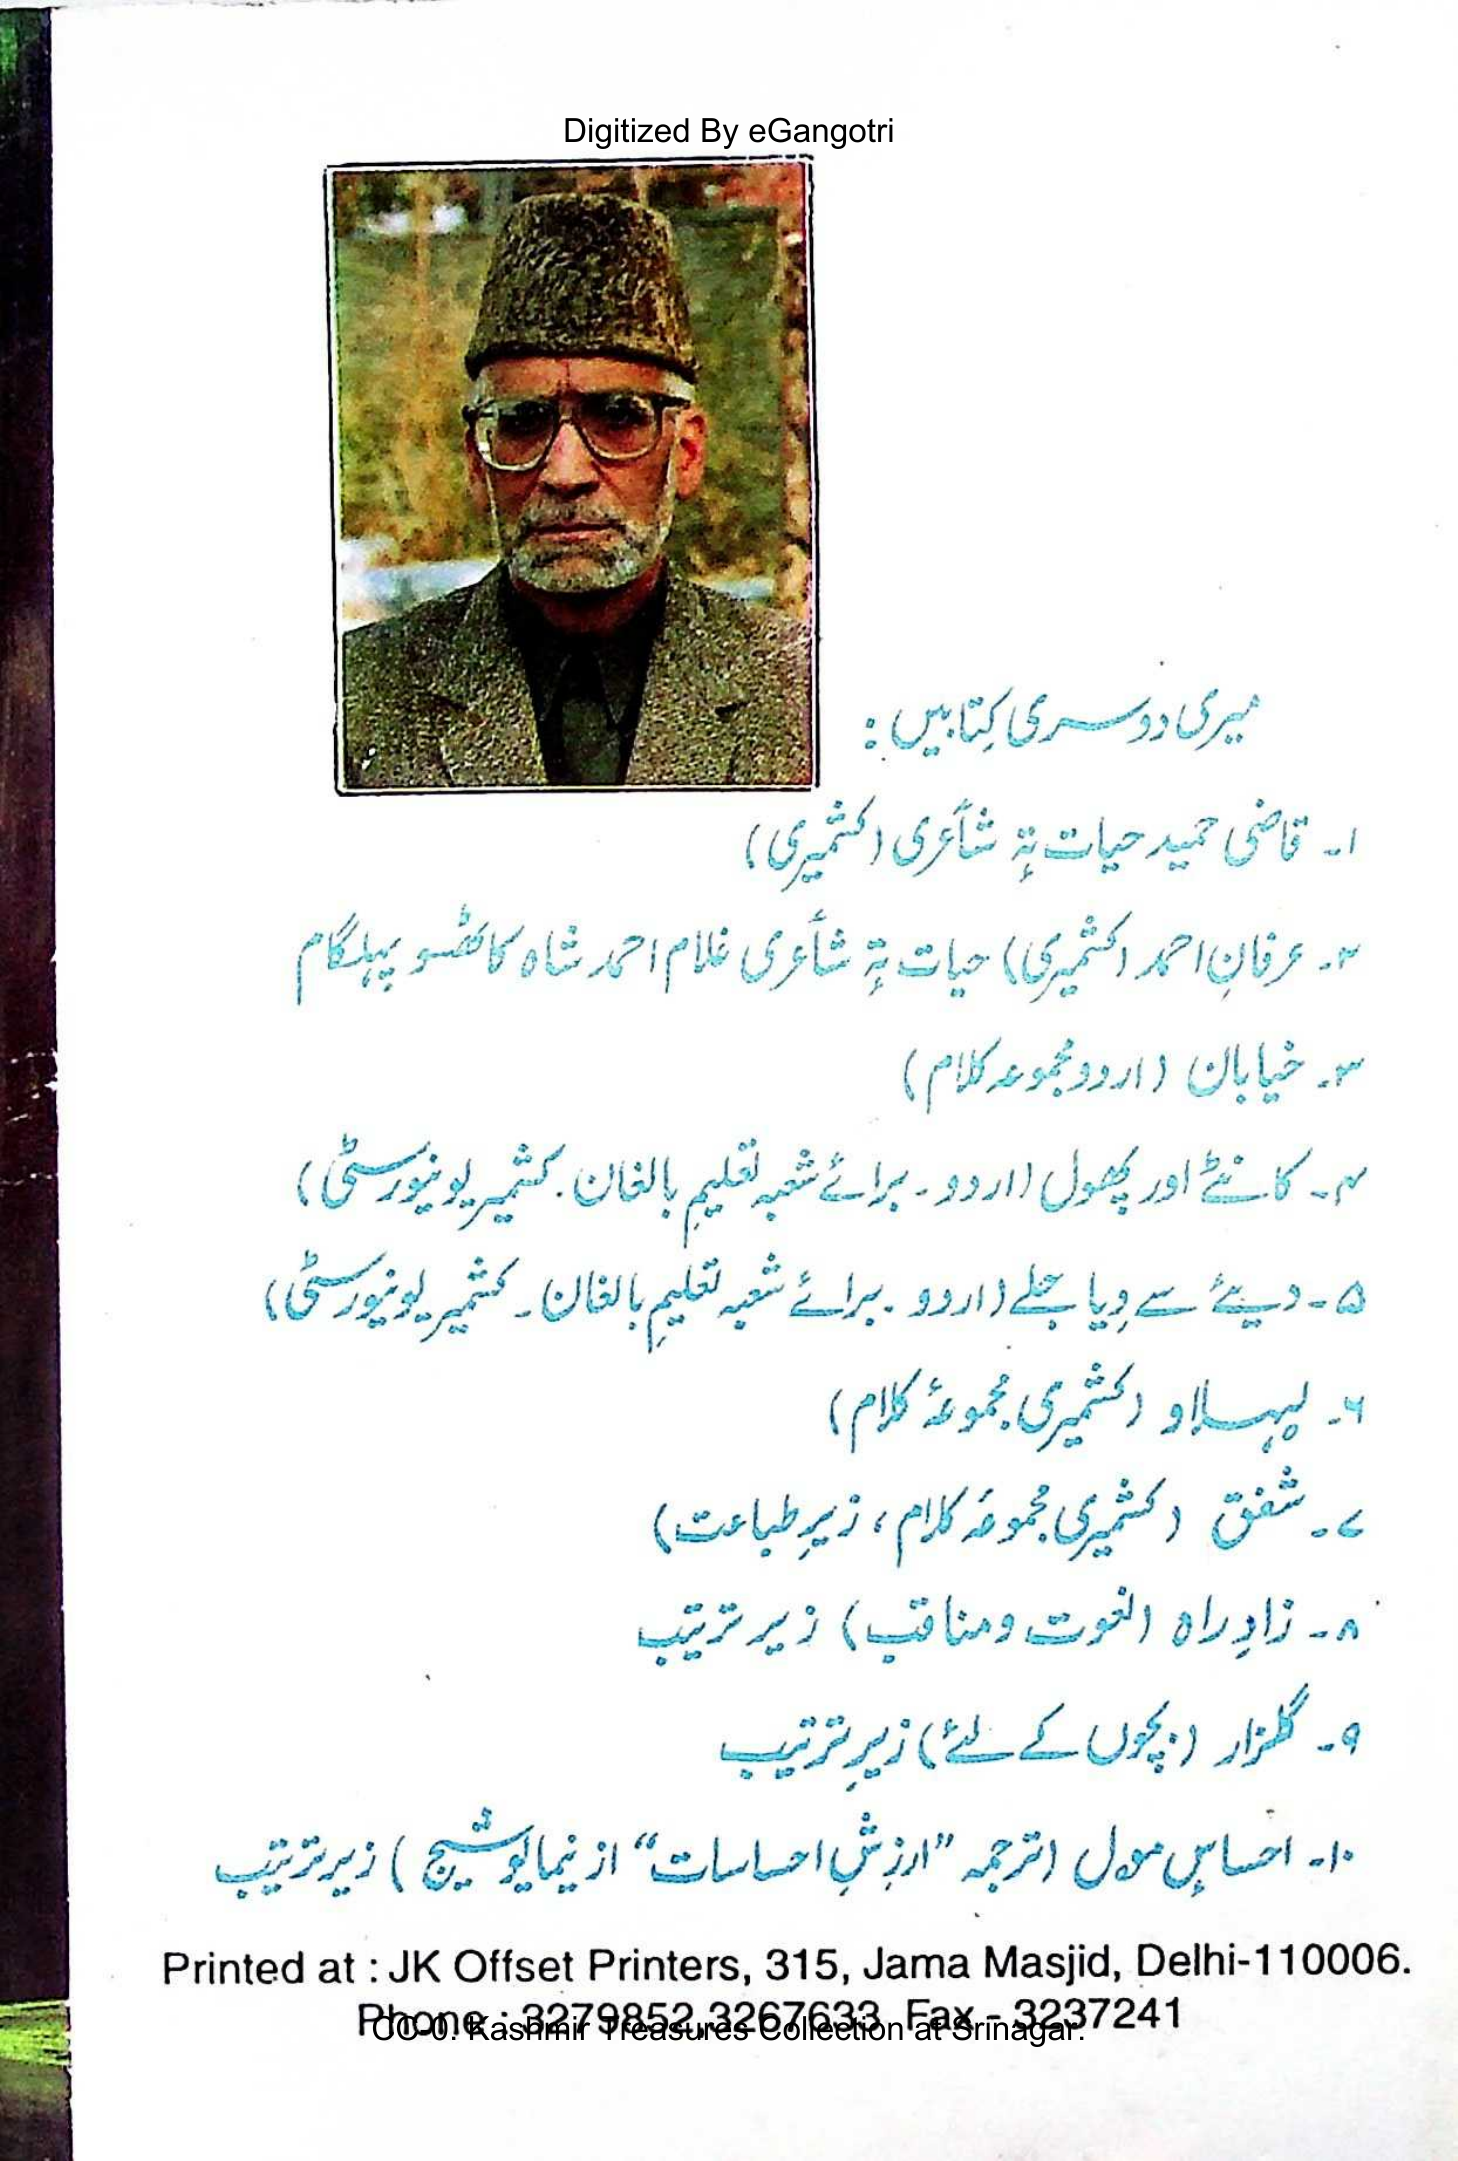 Digitized By eGangotri
میری دوسری کِتابیں :
۱۔ قاضی حمید حیات تہٕ شٲعری (کشمیری)
۲۔ عرفانِ احمد (کشمیری) حیات تہٕ شٲعری غلام احمد شاہ کاٹھسو پہلگام
۳۔ خیابان (اردو مجموعہ کلام)
۴۔ کانٹے اور پھول (اردو ۔ برائے شعبہ تعلیمِ بالغان۔ کشمیر یونیورسٹی)
۵۔ دیئے سے دِیا جلے (اردو ۔ برائے شعبہ تعلیمِ بالغان ۔ کشمیر یونیورسٹی)
۶۔ (کشمیری مجموعۂ کلام)
۷۔ شفق (کشمیری مجموعۂ کلام، زیرِ طباعت)
۸۔ زادِ راہ (نعوت و مناقب) زیر ترتیب
۹۔ گلزار (بچوں کے لئے) زیرِ ترتیب
۱۰۔ احساسِ مول (ترجمہ ”ارزشِ احساسات“ از نیما یوشیج) زیر ترتیب
Printed at : JK Offset Printers, 315, Jama Masjid, Delhi-110006.
Phone : 3279852,3267633 Fax - 3237241
CC-0. Kashmir Treasures Collection at Srinagar.